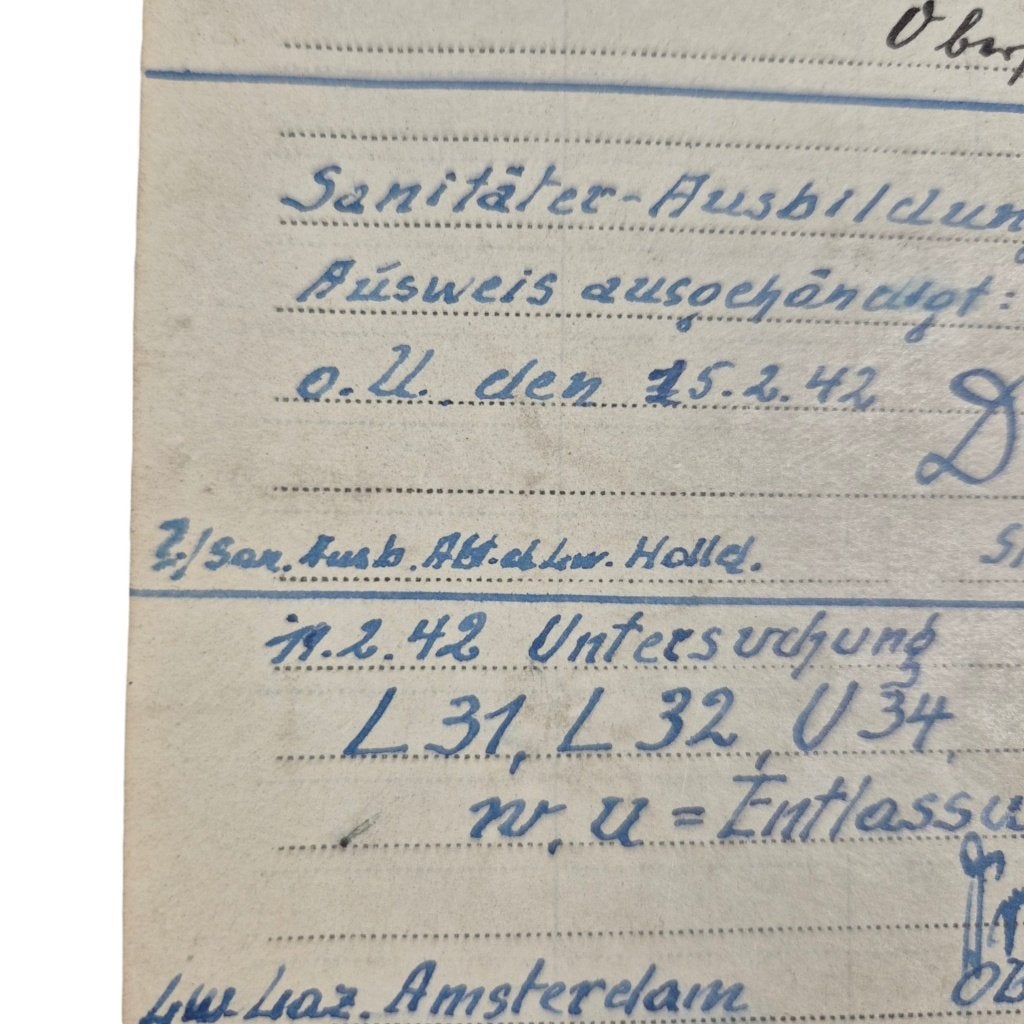 Ober
Sanitäter-Ausbildung
Ausweis ausgehändigt:
o.U. den 15.2.42
D
2/San. Ausb. Abt. d. Lw. Holld.
19.2.42 Untersuchung
L 31, L 32, U 34,
w. u = Entlassu
Ob
Lw. Laz. Amsterdam